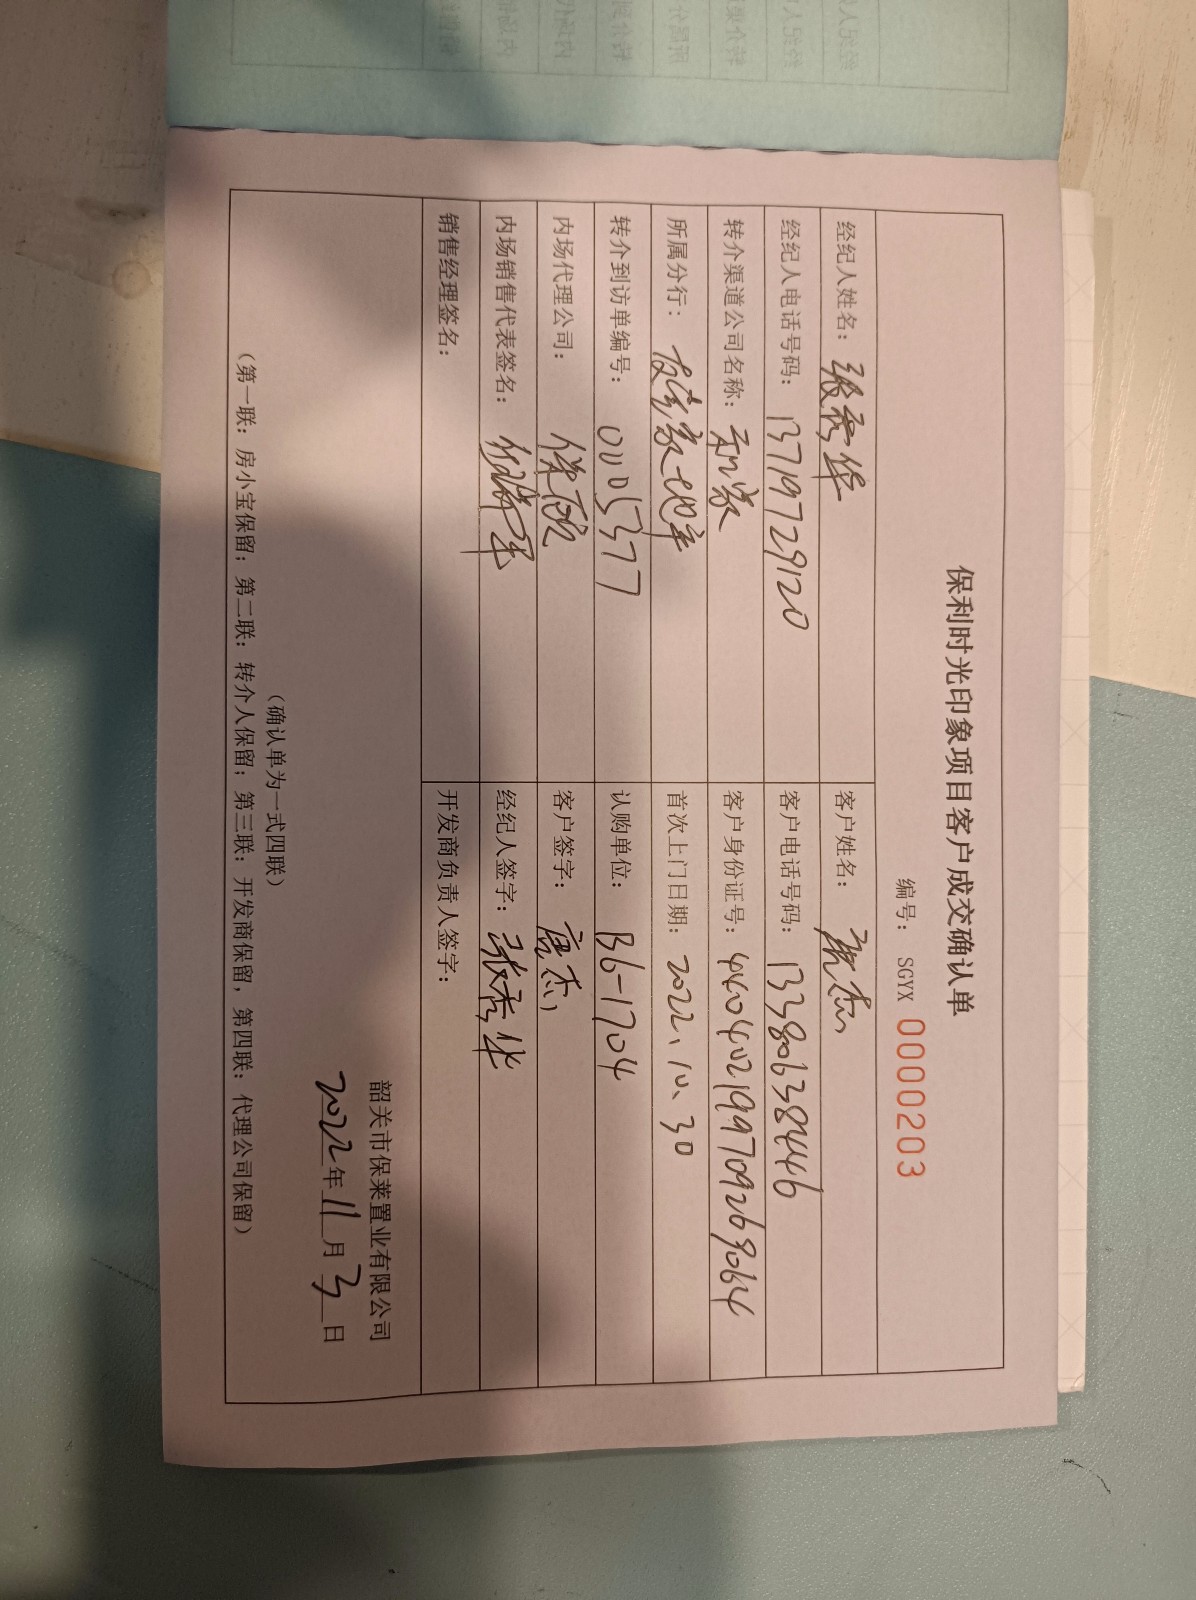 保利时光印象项目客户成交确认单
编号： SGYX 0000203
经纪人姓名： 张秀华 客户姓名：
经纪人电话号码： 13719729120 客户电话号码： 13380638446
转介渠道公司名称： 和家 客户身份证号： 440402199709269064
所属分行： 家地产 首次上门日期： 2022.10.30
转介到访单编号： 0005377 认购单位： B6-1704
内场代理公司： 保 客户签字：
内场销售代表签名： 经纪人签字： 张秀华
销售经理签名： 开发商负责人签字：
韶关市保莱置业有限公司
2022年11月3日
（确认单为一式四联）
（第一联：房小宝保留；第二联：转介人保留；第三联：开发商保留，第四联：代理公司保留）